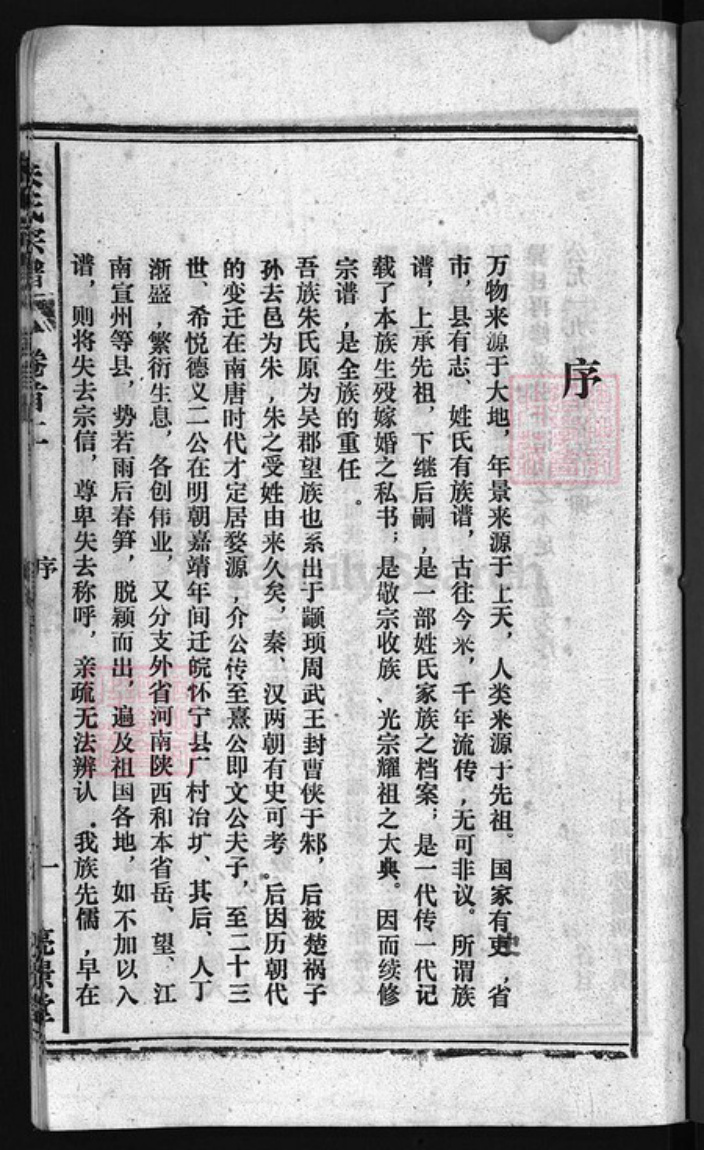 序
万物来源于大地，年景来源于上天，人类来源于先祖。国家有史，省
市，县有志、姓氏有族谱，古往今来，千年流传，无可非议。所谓族
谱，上承先祖，下继后嗣，是一部姓氏家族之档案；是一代传一代记
载了本族生殁嫁婚之私书；是敬宗收族、光宗耀祖之大典。因而续修
宗谱，是全族的重任。
吾族朱氏原为吴郡望族也系出于颛顼周武王封曹侠于邾，后被楚祸子
孙去邑为朱，朱之受姓由来久矣，秦、汉两朝有史可考。后因历朝代
的变迁在南唐时代才定居婺源，介公传至熹公即文公夫子，至二十三
世、希悦德义二公在明朝嘉靖年间迁皖怀宁县广村冶圹、其后、人丁
渐盛，繁衍生息，各创伟业，又分支外省河南陕西和本省岳、望、江
南宣州等县，势若雨后春笋，脱颖而出，遍及祖国各地，如不加以入
谱，则将失去宗信，尊卑失去称呼，亲疏无法辨认．我族先儒，早在
朱氏宗谱
卷首上
序
一
亮景堂